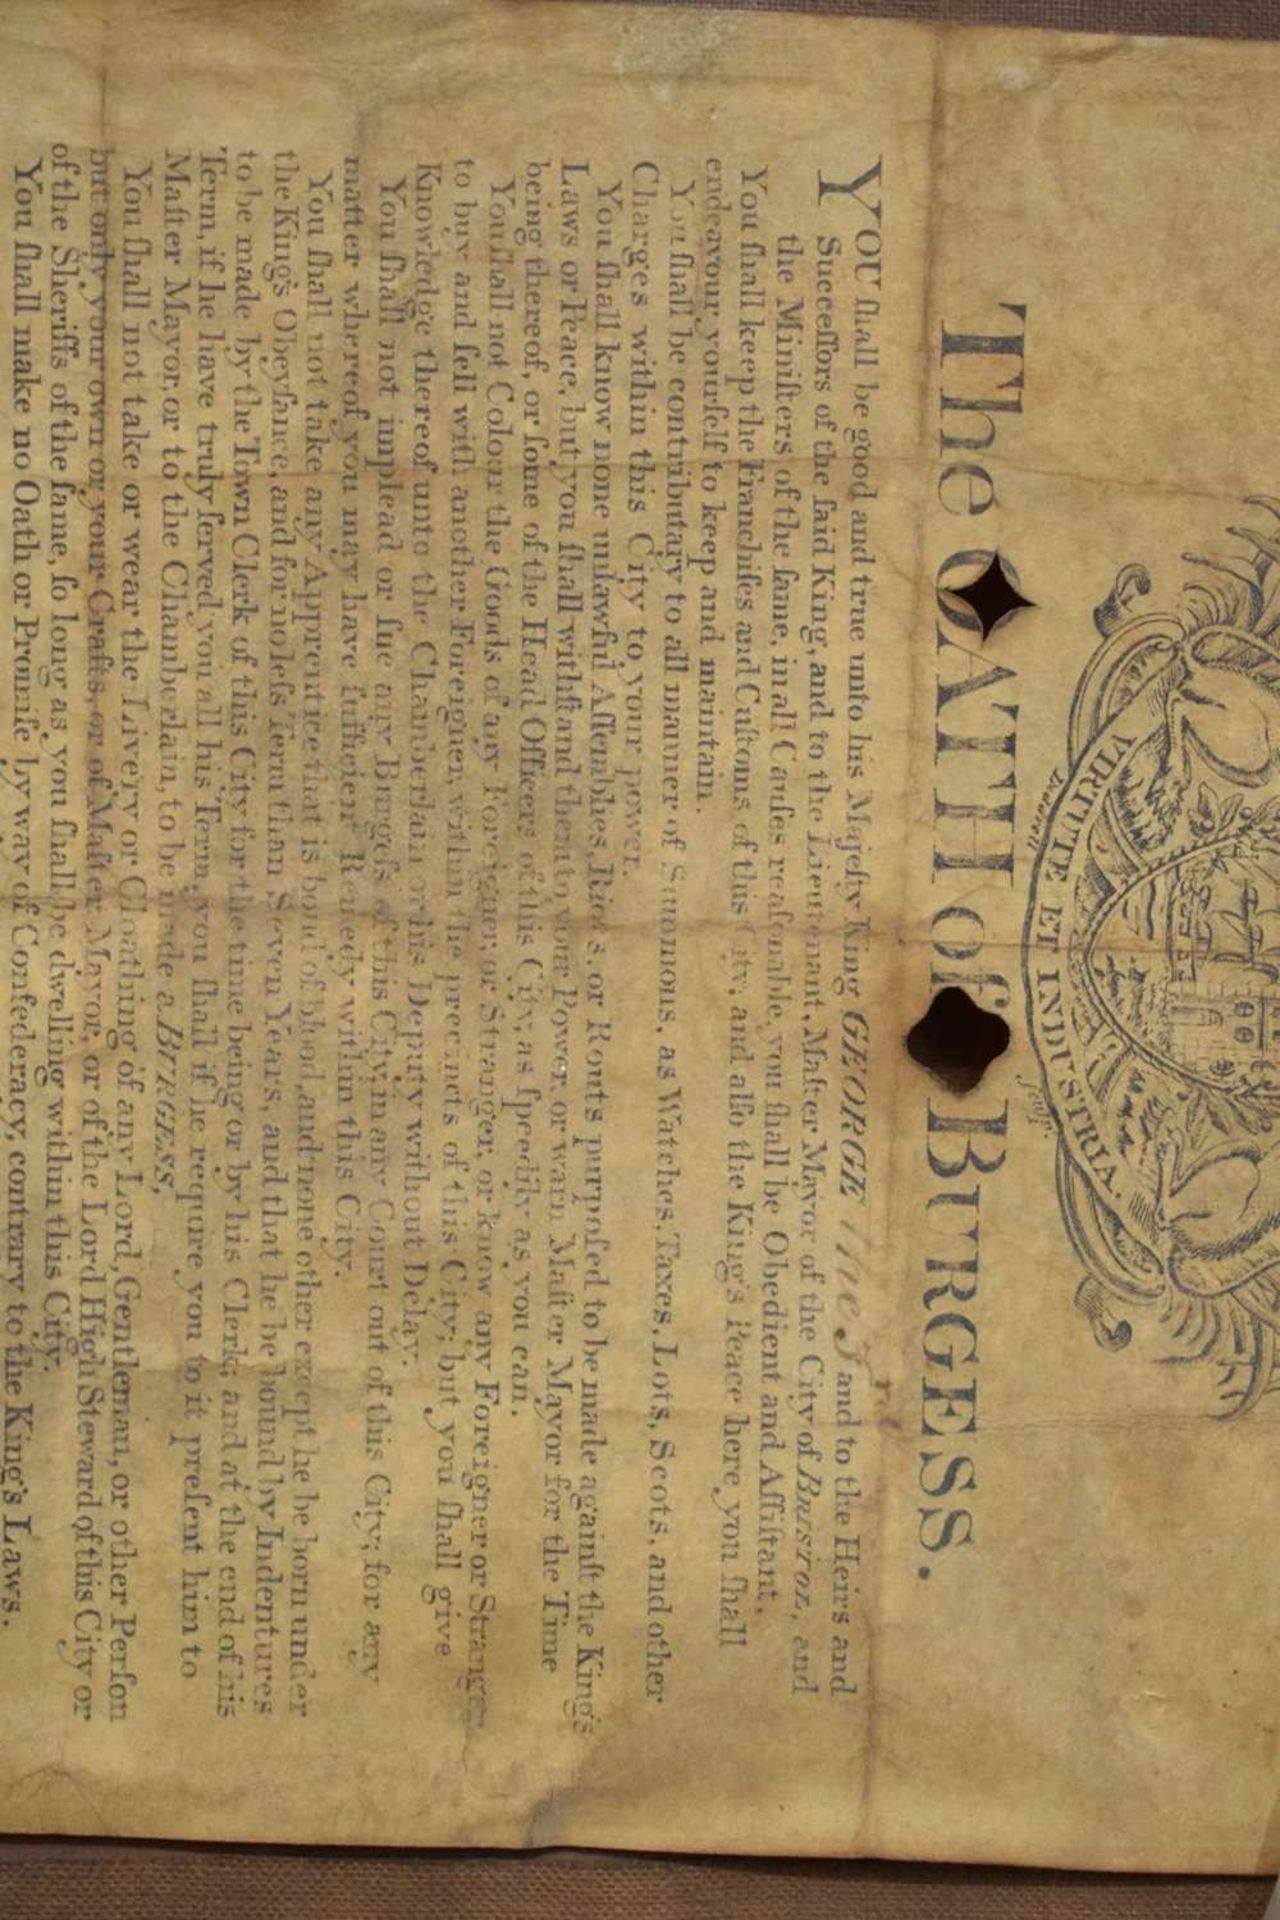 VIRTUTE ET INDUSTRIA.
sculp.
The OATH of BURGESS.
YOU ſhall be good and true unto his Majeſty King GEORGE the 3rd and to the Heirs and
Succeſſors of the ſaid King, and to the Lieutenant, Maſter Mayor of the City of BRISTOL, and
the Miniſters of the ſame, in all Cauſes reaſonable, you ſhall be Obedient and Aſſiſtant.
You ſhall keep the Franchiſes and Cuſtoms of this City, and alſo the King's Peace here you ſhall
endeavour yourſelf to keep and maintain.
You ſhall be contributary to all manner of Summons, as Watches, Taxes, Lots, Scots, and other
Charges within this City to your power.
You ſhall know none unlawful Aſſemblies, Riots, or Routs purpoſed to be made againſt the King's
Laws or Peace, but you ſhall withſtand them to your Power, or warn Maſter Mayor for the Time
being thereof, or ſome of the Head Officers of this City, as ſpeedily as you can.
You ſhall not Colour the Goods of any Foreigner, or Stranger, or know any Foreigner or Stranger
to buy and ſell with another Foreigner, within the precincts of this City; but you ſhall give
Knowledge thereof unto the Chamberlain or his Deputy without Delay.
You ſhall not implead or ſue any Burgeſs of this City, in any Court out of this City; for any
matter whereof you may have ſufficient Remedy within this City.
You ſhall not take any Apprentice that is bond of blood, and none other except he be born under
the King's Obeyſance, and for no leſs Term than Seven Years, and that he be bound by Indentures
to be made by the Town Clerk of this City for the time being or by his Clerk; and at the end of his
Term, if he have truly ſerved you all his Term, you ſhall if he require you to it preſent him to
Maſter Mayor, or to the Chamberlain, to be made a BURGESS,
You ſhall not take or wear the Livery or Cloathing of any Lord, Gentleman, or other Perſon
but only your own or your Crafts, or of Maſter Mayor, or of the Lord High Steward of this City or
of the Sheriffs of the ſame, ſo long as you ſhall be dwelling within this City.
You ſhall make no Oath or Promiſe by way of Confederacy, contrary to the King's Laws.